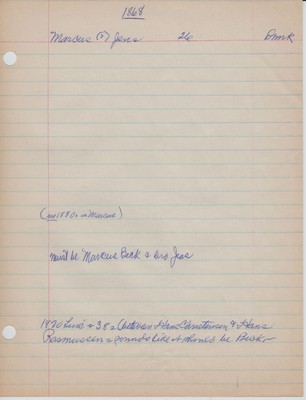 1868
Marcus (?) Jens 26 Dmrk
(no 1880s in Marcus)
must be Marcus Beck & bro Jens
1870 Lives 38 (between Hans Christensen & Hans
Rasmussen & sounds like it should be Beck